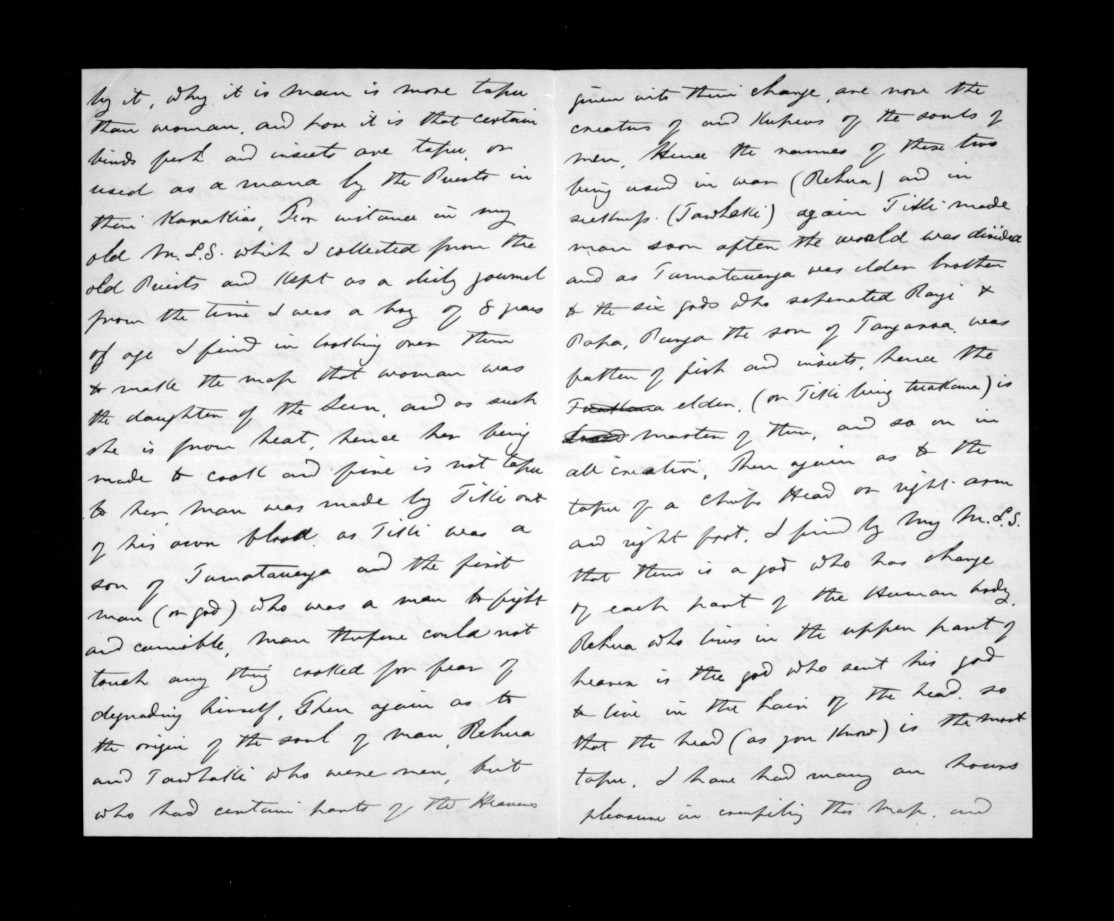 by it, why it is man is more tapu
than woman, and how it is that certain
birds fish and insects are tapu, or
used as a mana by the Priests in
their Karakias, For instance in my
old M.S.S. which I collected from the
old Priests and Kept as a daily journal
from the time I was a boy of 8 years
of age I find in looking over them
to make the map that woman was
the daughter of the Sun, and as such
she is from heat, hence her being
made to cook and fire is not tapu
to her, man was made by Tiki out
of his own blood. as Tiki was a
son of Tumatauenga and the first
man (or god) who was a man to fight
and cannible, man therfore could not
touch any thing cooked for fear of
degrading himself, Then again as to
the origin of the soul of man, Rehua
and Tawhaki who were men, but
who had certain parts of the Heavens
given into their charge, are now the
creators of and Kupeus of the souls of
men, Hence the names of these two
being used in war (Rehua) and in
sickness. (Tawhaki) again Tiki made
man soon after the world was divided
and as Tumatauenga was elder brother
to the six gods who seperated Rangi &
Papa, Punga the son of Tangaroa, was
father of fish and insects, hence the
Tuakana elder, (or Tiki being tuakana) is
master of them, and so on in
all creation, Then again as to the
tapu of a chiefs Head or right arm
and right foot, I find by my M.S.S.
that there is a god who has charge
of each part of the Human body,
Rehua who lives in the upper part of
heaven is the god who sent his god
to live in the hair of the head. so
that the head (as you Know) is the most
tapu. I have had many an hours
pleasure in compiling this map. and